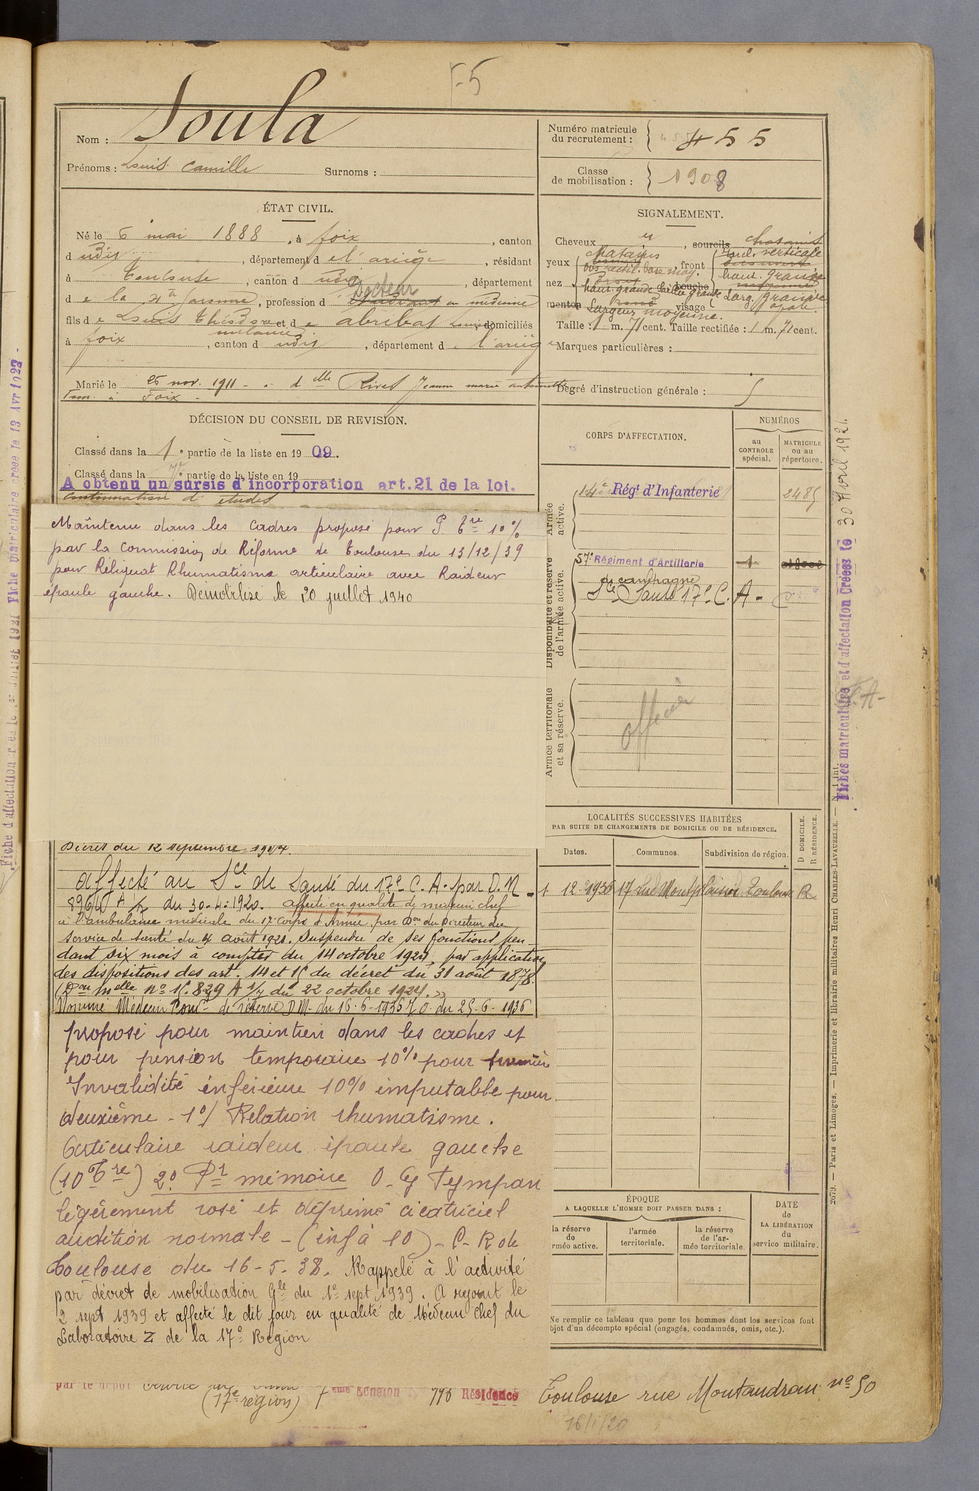 F5
Nom : Soula
Prénoms : Louis Camille Surnoms :
Numéro matricule du recrutement : 455
Classe de mobilisation : 1908
ÉTAT CIVIL.
Né le 6 mai 1888, à foix, canton
d udis, département d e l'ariège, résidant
à Toulouse, canton d udis, département
d e la Hte Garonne, profession d Docteur en médecine
fils d e Louis Théodore et d e abribat domiciliés
à foix, canton d udis, département d e l'ariège
Marié le 25 nov. 1911 - à dlle Rivet Jeanne marie antoinette
à Foix
SIGNALEMENT.
Cheveux , sourcils chatains
yeux chatains front
nez bouche
menton visage
largeur moyenne.
Taille : 1 m. 71 cent. Taille rectifiée : 1 m. 71 cent.
Marques particulières :
Degré d'instruction générale : 5
DÉCISION DU CONSEIL DE REVISION.
Classé dans la 1re partie de la liste en 1909.
Classé dans la 7e partie de la liste en 19
A obtenu un sursis d'incorporation art. 21 de la loi.
continuation d'études
Maintenu dans les cadres proposé pour P. Tre 10%
par la Commission de Réforme de Toulouse du 13/12/39
pour Reliquat Rhumatisme articulaire avec Raideur
épaule gauche. Démobilisé le 20 juillet 1940
CORPS D'AFFECTATION.
NUMÉROS
au CONTROLE spécial.
MATRICULE ou au répertoire.
Armée active.
14e Régt d'Infanterie 2485
Disponibilité et réserve de l'armée active.
57e Régiment d'Artillerie
de campagne
Sce Santé 17e C. A -
Armée territoriale et sa réserve.
officier
Fiches matriculaires et d'affectation Créées le 30 Avril 1921.
LOCALITÉS SUCCESSIVES HABITÉES
PAR SUITE DE CHANGEMENTS DE DOMICILE OU DE RÉSIDENCE.
Dates. Communes. Subdivision de région. D DOMICILE. R RÉSIDENCE.
1 12 1936 17 rue Montplaisir Toulouse R
Décret du 12 septembre 1914.
affecté au Sce de Santé du 17e C. A. par D. M
du 30-4-1920. affecté en qualité de médecin chef
à l'ambulance médicale du 17 corps d'Armée par Don du Directeur du
Service de Santé du 4 août 1921. Suspendu de ses fonctions pen
dant six mois à compter du 14 octobre 1924, par application
des dispositions des art. 14 et 15 du décret du 31 août 1878.
du 22 octobre 1924.
Nommé Médecin de réserve D.M. du 16-6-1936 J.O. du 25-6-1936
proposé pour maintien dans les cadres et
pour pension temporaire 10% pour première
Invalidité inférieure 10% imputable pour
deuxième - 1°/ Relation rhumatisme.
Articulaire raideur épaule gauche
(10% Tre) 2° Pr mémoire O. G Tympan
légèrement rosé et déprimé cicatriciel
audition normale - (inf à 10) - C. R de
Toulouse du 16-5-38. Rappelé à l'activité
par décret de mobilisation Gle du 1er sept 1939. A rejoint le
2 sept 1939 et affecté le dit jour en qualité de Médecin chef du
Laboratoire Z de la 17e Région
ÉPOQUE
A LAQUELLE L'HOMME DOIT PASSER DANS :
la réserve de l'armée active.
l'armée territoriale.
la réserve de l'armée territoriale.
DATE de LA LIBÉRATION du service militaire.
Ne remplir ce tableau que pour les hommes dont les services font
objet d'un décompte spécial (engagés, condamnés, omis, etc.).
(17e région) Résidence Toulouse rue Montaudran no 50
16/1/20
2673. — Paris et Limoges. — Imprimerie et librairie militaires Henri CHARLES-LAVAUZELLE.